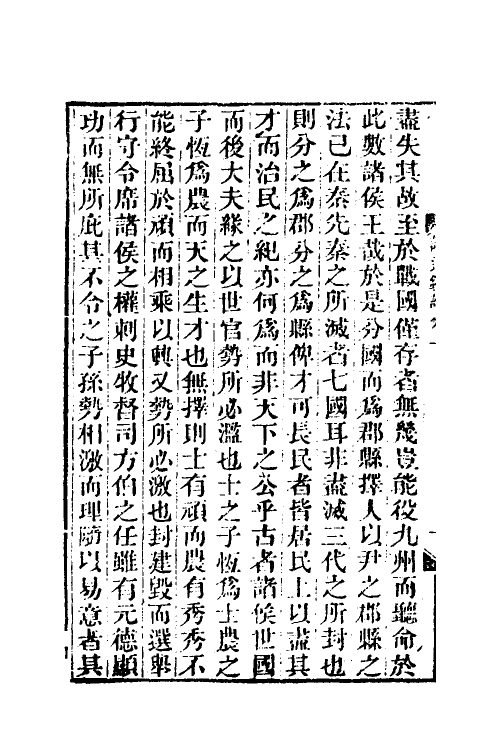 盡失其故至於戰國僅存者無幾豈能役九州而聽命於
此數諸侯王哉於是分國而爲郡縣擇人以尹之郡縣之
法已在秦先秦之所滅者七國耳非盡滅三代之所封也
則分之爲郡分之爲縣俾才可長民者皆居民上以盡其
才而治民之紀亦何爲而非天下之公乎古者諸侯世國
而後大夫緣之以世官勢所必濫也士之子恆爲士農之
子恆爲農而天之生才也無擇則士有頑而農有秀秀不
能終屈於頑而相乘以興又勢所必激也封建毀而選舉
行守令席諸侯之權刺史牧督司方伯之任雖有元德顯
功而無所庇其不令之子孫勢相激而理隨以易意者其